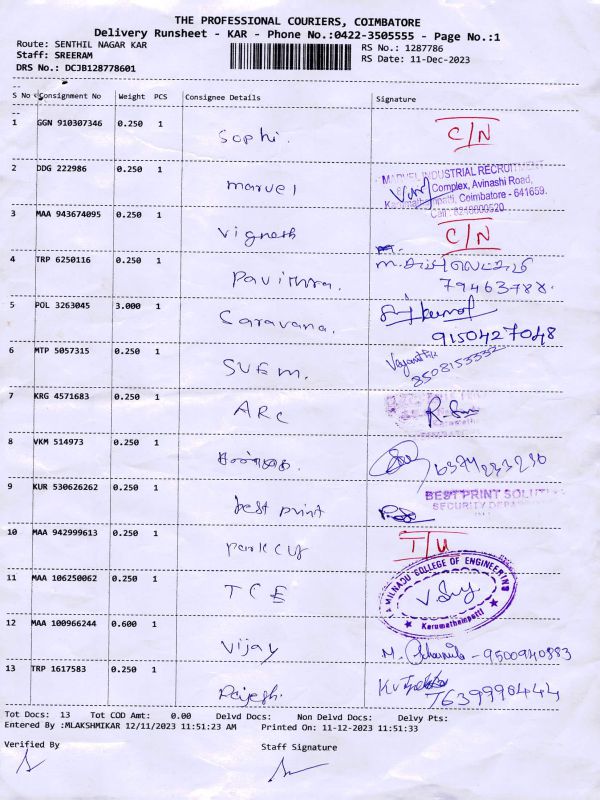 THE PROFESSIONAL COURIERS, COIMBATORE
Delivery Runsheet - KAR - Phone No.:0422-3505555 - Page No.:1
Route: SENTHIL NAGAR KAR RS No.: 1287786
Staff: SREERAM RS Date: 11-Dec-2023
DRS No.: DCJB128778601
S No Consignment No Weight PCS Consignee Details Signature
1 GGN 910307346 0.250 1 Sophi. C/N
2 DDG 222986 0.250 1 marvel
MARVEL INDUSTRIAL RECRUITMENT
Complex, Avinashi Road,
Coimbatore - 641659.
3 MAA 943674095 0.250 1 Vignesh C/N
4 TRP 6250116 0.250 1 Pavithra.
79463788.
5 POL 3263045 3.000 1 Caravana.
9150427048
6 MTP 5057315 0.250 1 SUEM.
8508153332
7 KRG 4571683 0.250 1 ARC
8 VKM 514973 0.250 1
6374233236
9 KUR 530626262 0.250 1 best print
BEST PRINT SOLUTI
SECURITY DEPA
10 MAA 942999613 0.250 1 Park cly T/U
11 MAA 106250062 0.250 1 TCE
TAMILNADU COLLEGE OF ENGINEERING
Karumathampatti
12 MAA 100966244 0.600 1 Vijay
9500940883
13 TRP 1617583 0.250 1 Rajesh.
7639990444
Tot Docs: 13 Tot COD Amt: 0.00 Delvd Docs: Non Delvd Docs: Delvy Pts:
Entered By :MLAKSHMIKAR 12/11/2023 11:51:23 AM Printed On: 11-12-2023 11:51:33
Verified By Staff Signature